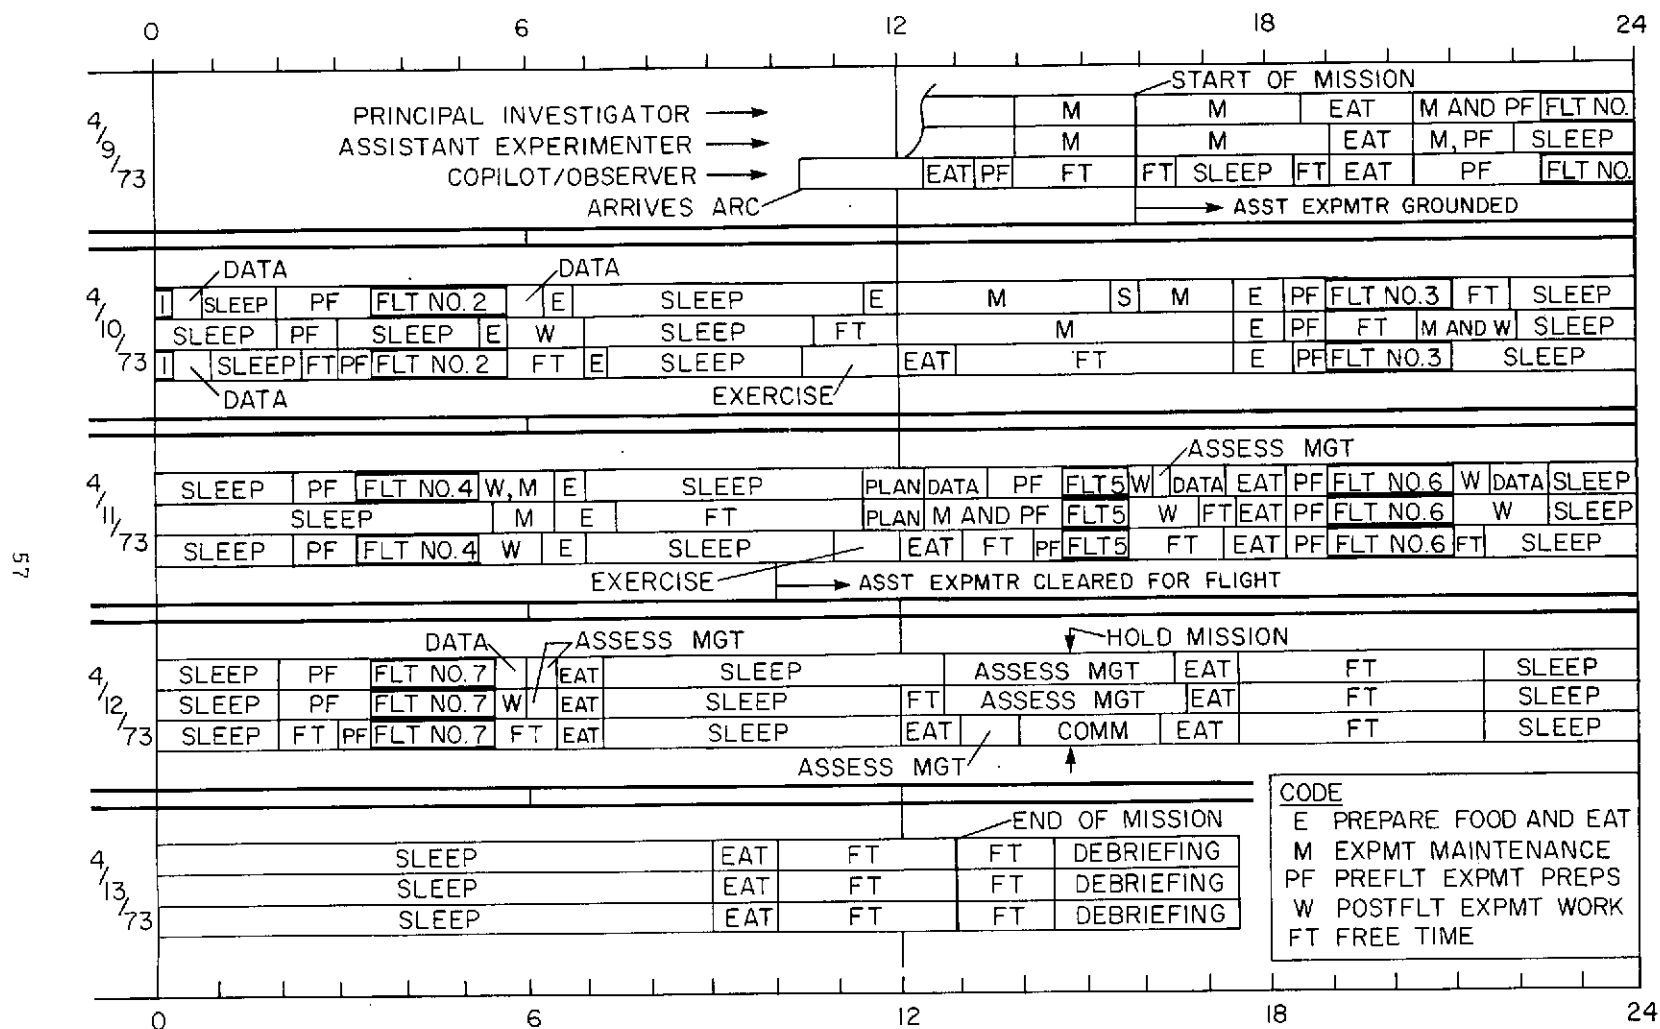 0 6 12 18 24
START OF MISSION
4/9/73
PRINCIPAL INVESTIGATOR M M EAT M AND PF FLT NO.
ASSISTANT EXPERIMENTER M M EAT M, PF SLEEP
COPILOT/OBSERVER EAT PF FT FT SLEEP FT EAT PF FLT NO.
ARRIVES ARC ASST EXPMTR GROUNDED
DATA DATA
4/10/73
1 SLEEP PF FLT NO. 2 E SLEEP E M S M E PF FLT NO.3 FT SLEEP
SLEEP PF SLEEP E W SLEEP FT M E PF FT M AND W SLEEP
1 SLEEP FT PF FLT NO. 2 FT E SLEEP EAT FT E PF FLT NO.3 SLEEP
DATA EXERCISE
ASSESS MGT
4/11/73
SLEEP PF FLT NO. 4 W, M E SLEEP PLAN DATA PF FLT5 W DATA EAT PF FLT NO. 6 W DATA SLEEP
SLEEP M E FT PLAN M AND PF FLT5 W FT EAT PF FLT NO. 6 W SLEEP
SLEEP PF FLT NO. 4 W E SLEEP EAT FT PF FLT5 FT EAT PF FLT NO. 6 FT SLEEP
EXERCISE ASST EXPMTR CLEARED FOR FLIGHT
57
DATA ASSESS MGT HOLD MISSION
4/12/73
SLEEP PF FLT NO. 7 EAT SLEEP ASSESS MGT EAT FT SLEEP
SLEEP PF FLT NO. 7 W EAT SLEEP FT ASSESS MGT EAT FT SLEEP
SLEEP FT PF FLT NO. 7 FT EAT SLEEP EAT COMM EAT FT SLEEP
ASSESS MGT
END OF MISSION
4/13/73
SLEEP EAT FT FT DEBRIEFING
SLEEP EAT FT FT DEBRIEFING
SLEEP EAT FT FT DEBRIEFING
CODE
E PREPARE FOOD AND EAT
M EXPMT MAINTENANCE
PF PREFLT EXPMT PREPS
W POSTFLT EXPMT WORK
FT FREE TIME
0 6 12 18 24